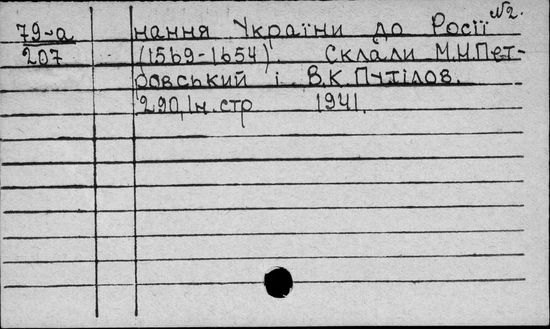 №2.
79-а нання України до Росії
207 (1569-1654). Склали М.Н.Пет-
ровський і В.К.Путілов.
290,1н.стр 1941.